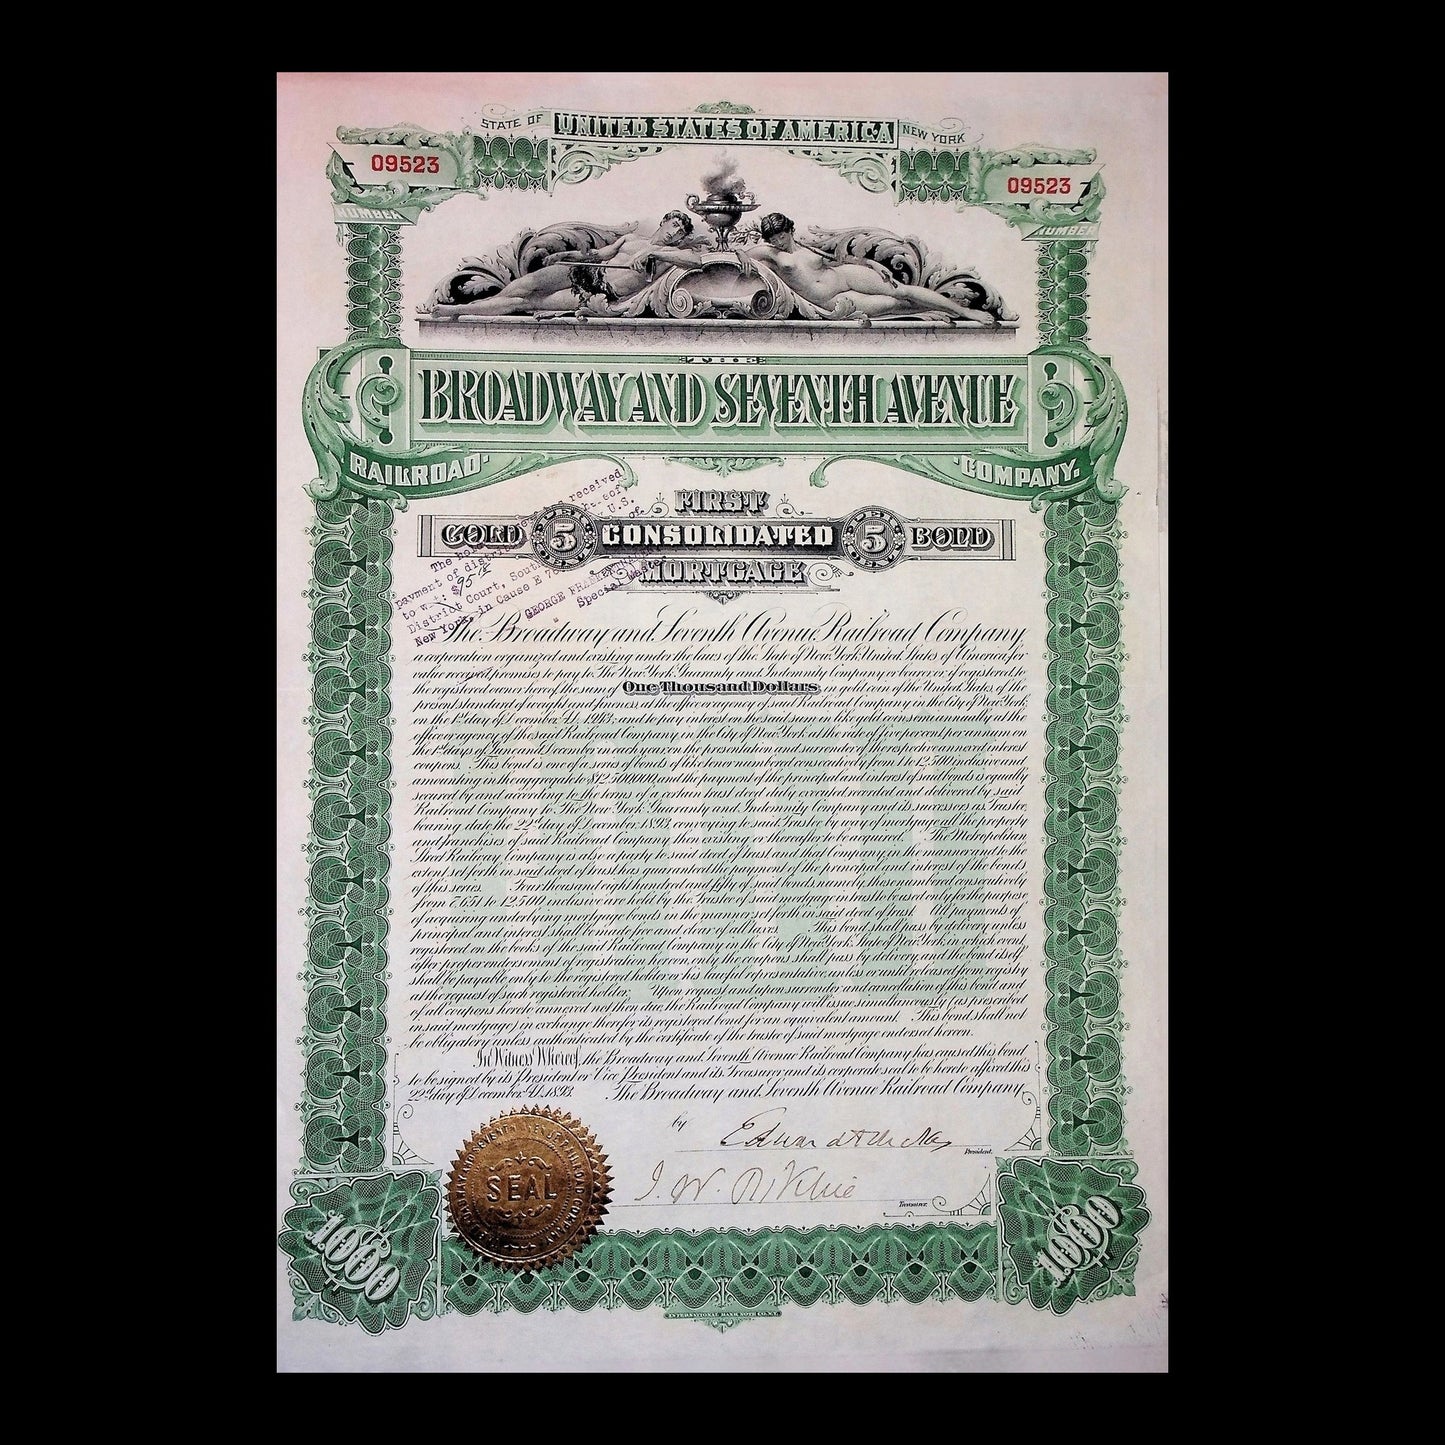 STATE OF UNITED STATES OF AMERICA NEW YORK
09523
09523
NUMBER
NUMBER
THE
BROADWAY AND SEVENTH AVENUE
RAILROAD COMPANY.
FIRST
GOLD 5 CONSOLIDATED 5 BOND
MORTGAGE
received
payment of
U.S.
District Court, South
New York, in Cause E
GEORGE
Special Master
The Broadway and Seventh Avenue Railroad Company,
a corporation organized and existing under the laws of the State of New York, United States of America, for
value received promises to pay to The New York Guaranty and Indemnity Company or bearer or if registered, to
the registered owner hereof, the sum of One Thousand Dollars, in gold coin of the United States, of the
present standard of weight and fineness, at the office or agency of said Railroad Company in the City of New York,
on the 1st day of December A.D. 1943; and to pay interest on the said sum in like gold coin semiannually at the
office or agency of the said Railroad Company, in the City of New York at the rate of five per cent per annum on
the 1st days of June and December in each year, on the presentation and surrender of the respective annexed interest
coupons. This bond is one of a series of bonds of like tenor numbered consecutively from 1 to 12,500 inclusive and
amounting in the aggregate to $12,500,000, and the payment of the principal and interest of said bonds is equally
secured by and according to the terms of a certain trust deed duly executed recorded and delivered by said
Railroad Company to The New York Guaranty and Indemnity Company and its successors as Trustee,
bearing date the 22nd day of December, 1893, conveying to said Trustee by way of mortgage all the property
and franchises of said Railroad Company then existing or thereafter to be acquired. The Metropolitan
Street Railway Company is also a party to said deed of trust and that Company, in the manner and to the
extent set forth in said deed of trust has guaranteed the payment of the principal and interest of the bonds
of this series. Four thousand eight hundred and fifty of said bonds, namely, those numbered consecutively
from 7,651 to 12,500 inclusive are held by the Trustee of said mortgage in trust to be used only for the purpose
of acquiring underlying mortgage bonds in the manner set forth in said deed of trust. All payments of
principal and interest shall be made free and clear of all taxes. This bond shall pass by delivery, unless
registered on the books of the said Railroad Company in the City of New York, State of New York, in which event,
after proper endorsement of registration hereon, only the coupons shall pass by delivery, and the bond itself
shall be payable only to the registered holder or his lawful representative unless or until released from registry
at the request of such registered holder. Upon request and upon surrender and cancellation of this bond and
of all coupons hereto annexed not then due, the Railroad Company will issue simultaneously (as prescribed
in said mortgage) in exchange therefor its registered bond for an equivalent amount. This bond shall not
be obligatory unless authenticated by the certificate of the trustee of said mortgage endorsed hereon.
In Witness Whereof, the Broadway and Seventh Avenue Railroad Company has caused this bond
to be signed by its President or Vice President and its Treasurer and its corporate seal to be hereto affixed this
22nd day of December A.D. 1893. The Broadway and Seventh Avenue Railroad Company,
by
President.
Treasurer.
SEAL
1000
1000
INTERNATIONAL BANK NOTE CO. N.Y.